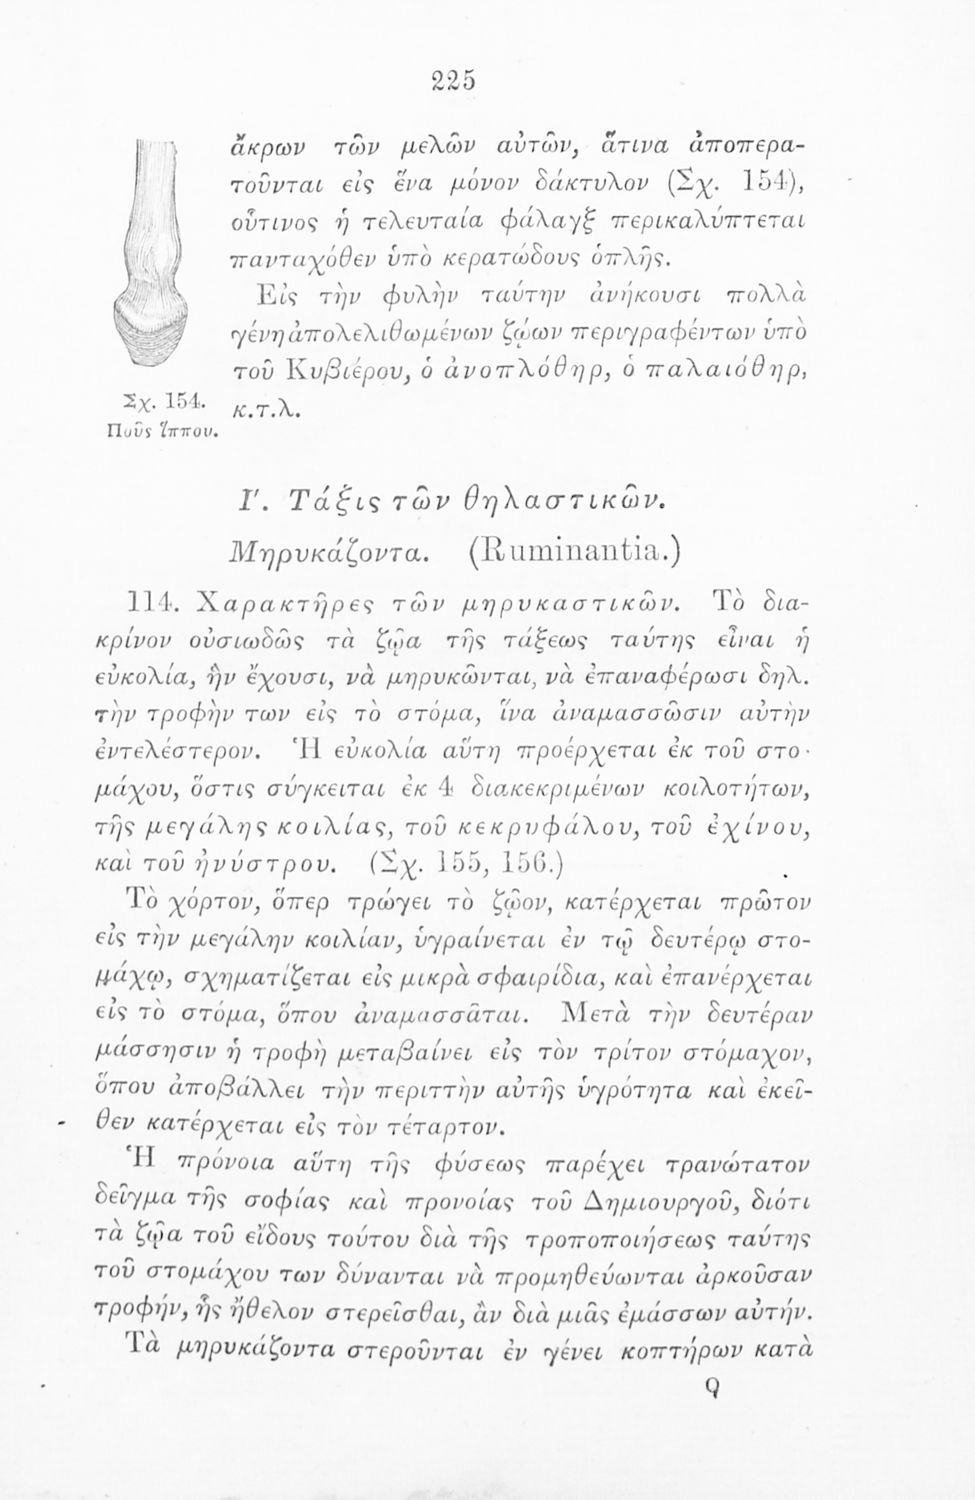 225
ἄκρων τῶν μελῶν αὐτῶν, ἅτινα ἀποπερα-
τοῦνται εἰς ἕνα μόνον δάκτυλον (Σχ. 154),
οὗτινος ἡ τελευταία φάλαγξ περικαλύπτεται
πανταχόθεν ὑπὸ κερατώδους ὁπλῆς.
Εἰς τὴν φυλὴν ταύτην ἀνήκουσι πολλὰ
γένη ἀπολελιθωμένων ζῴων περιγραφέντων ὑπὸ
τοῦ Κυβιέρου, ὁ ἀνοπλόθηρ, ὁ παλαιόθηρ,
κ.τ.λ.
Σχ. 154.
Ποῦς ἵππου.
Γ'. Τάξις τῶν θηλαστικῶν.
Μηρυκάζοντα. (Ruminantia.)
114. Χαρακτῆρες τῶν μηρυκαστικῶν. Τὸ δια-
κρίνον οὐσιωδῶς τὰ ζῷα τῆς τάξεως ταύτης εἶναι ἡ
εὐκολία, ἣν ἔχουσι, νὰ μηρυκῶνται, νὰ ἐπαναφέρωσι δηλ.
τὴν τροφὴν των εἰς τὸ στόμα, ἵνα ἀναμασσῶσιν αὐτὴν
ἐντελέστερον. Ἡ εὐκολία αὕτη προέρχεται ἐκ τοῦ στο-
μάχου, ὅστις σύγκειται ἐκ 4 διακεκριμένων κοιλοτήτων,
τῆς μεγάλης κοιλίας, τοῦ κεκρυφάλου, τοῦ ἐχίνου,
καὶ τοῦ ἠνύστρου. (Σχ. 155, 156.)
Τὸ χόρτον, ὅπερ τρώγει τὸ ζῷον, κατέρχεται πρῶτον
εἰς τὴν μεγάλην κοιλίαν, ὑγραίνεται ἐν τῷ δευτέρῳ στο-
μάχῳ, σχηματίζεται εἰς μικρὰ σφαιρίδια, καὶ ἐπανέρχεται
εἰς τὸ στόμα, ὅπου ἀναμασσᾶται. Μετὰ τὴν δευτέραν
μάσσησιν ἡ τροφὴ μεταβαίνει εἰς τὸν τρίτον στόμαχον,
ὅπου ἀποβάλλει τὴν περιττὴν αὐτῆς ὑγρότητα καὶ ἐκεῖ-
θεν κατέρχεται εἰς τὸν τέταρτον.
Ἡ πρόνοια αὕτη τῆς φύσεως παρέχει τρανώτατον
δεῖγμα τῆς σοφίας καὶ προνοίας τοῦ Δημιουργοῦ, διότι
τὰ ζῷα τοῦ εἴδους τούτου διὰ τῆς τροποποιήσεως ταύτης
τοῦ στομάχου των δύνανται νὰ προμηθεύωνται ἀρκοῦσαν
τροφήν, ἧς ἤθελον στερεῖσθαι, ἂν διὰ μιᾶς ἐμάσσων αὐτήν.
Τὰ μηρυκάζοντα στεροῦνται ἐν γένει κοπτήρων κατὰ
Q